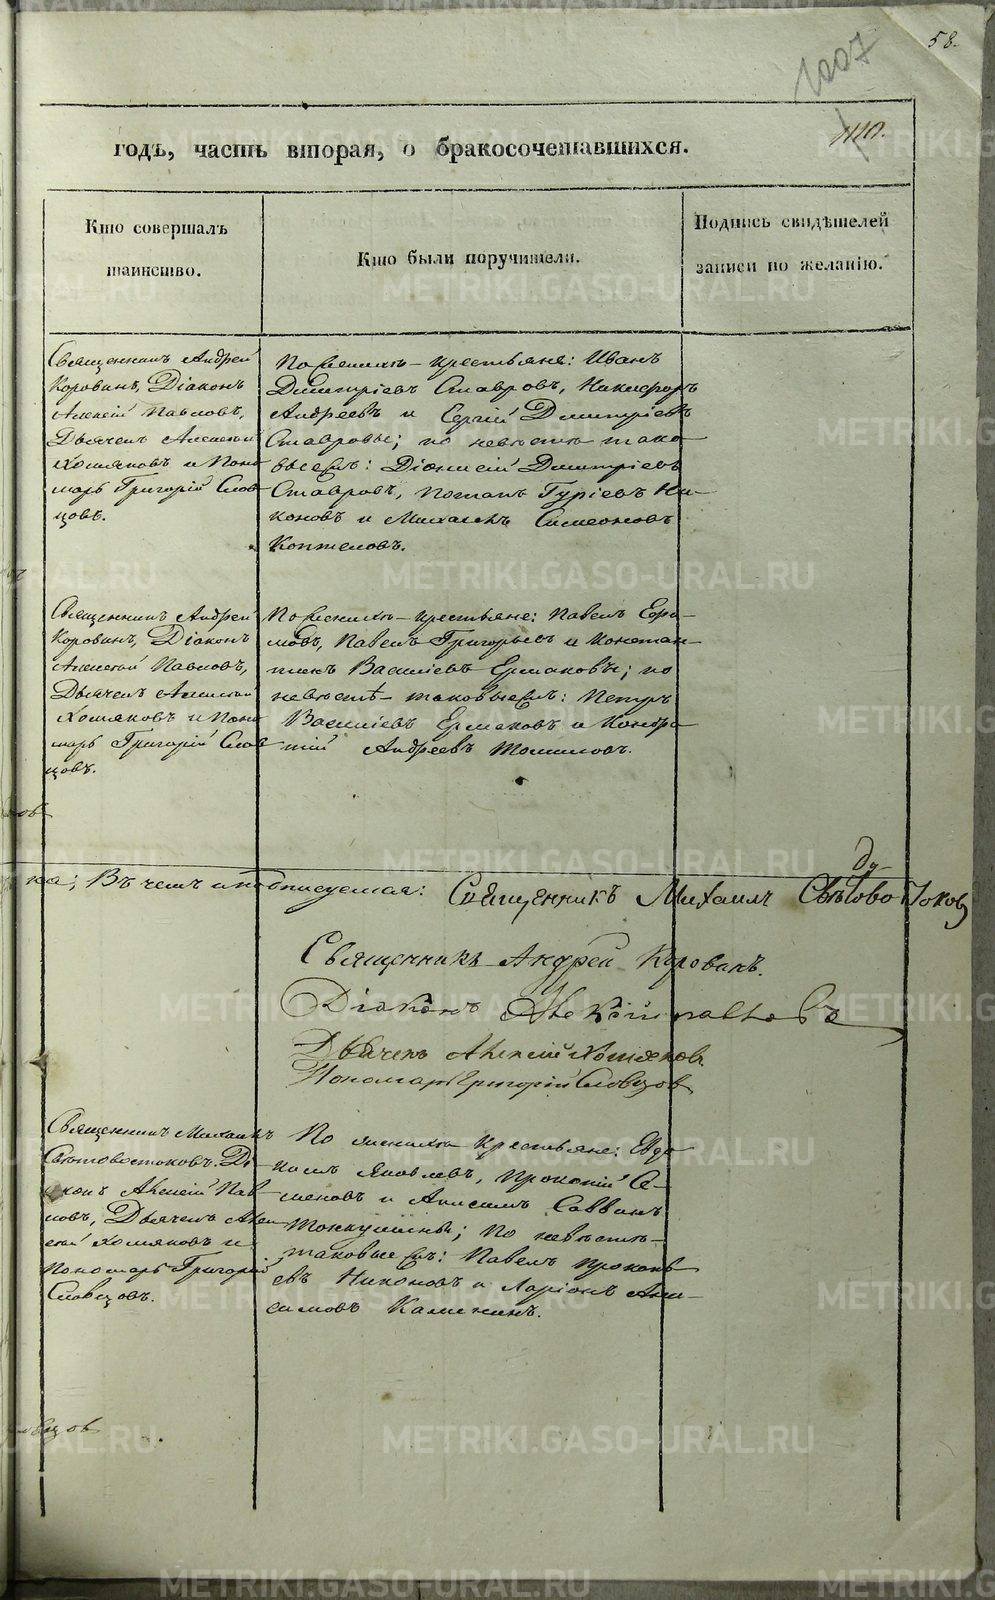 58.
1007
годъ, часть вторая, о бракосочетавшихся.
Кто совершалъ
таинство.
Кто были поручители.
Подпись свидѣтелей
записи по желанію.
Священникъ Андрей
Корованъ, Діаконъ
Алексій Павловъ,
Дьячекъ Алексій
Хомяковъ и Поно
марь Григорій Слов
цовъ.
По женихѣ крестьяне: Иванъ
Димитріевъ Ставровъ, Никифоръ
Андреевъ и Сергій Димитріевъ
Ставровы; по невѣстѣ тако
выежъ: Діонисій Димитріевъ
Ставровъ, Потапъ Гуріевъ Ни-
коновъ и Михаилъ Симеоновъ
Коптеловъ.
Священникъ Андрей
Корованъ, Діаконъ
Алексій Павловъ,
Дьячекъ Алексій
Хомяковъ и Поно
марь Григорій Слов
цовъ.
По женихѣ крестьяне: Павелъ
Павелъ Григорьевъ и Констан-
тинъ Василіевъ Ермаковы; по
невѣстѣ таковыежъ: Петръ
Василіевъ Ермаковъ и Кондра
тій Андреевъ Томиловъ.
ка; Въ чемъ и подписуемся: Священникъ Михаилъ
Священникъ Андрей Корованъ.
Діаконъ Алексій Павловъ
Дьячекъ Алексій Хомяковъ
Пономарь Григорій Словцовъ
Священникъ Михаилъ
Свѣтовостоковъ. Ді-
аконъ Алексій Пав-
ловъ, Дьячекъ Алек
сій Хомяковъ и
Пономарь Григорій
Словцовъ.
По женихѣ крестьяне: Евдо
кимъ Яковлевъ, Прокопій Се-
меновъ и Анисимъ Саввинъ
по невѣстѣ
таковыежъ: Павелъ Прокопь
евъ Никоновъ и Ларіонъ Ани-
симовъ Калининъ.
METRIKI.GASO-URAL.RU